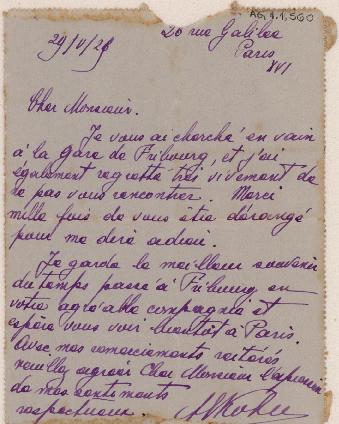 AG.1.1,560
20 rue Galilée
Paris
XVI
29/V/28
Cher Monsieur.
Je vous ai cherché en vain
à la gare de Fribourg, et j'ai
également regretté très vivement de
ne pas vous rencontrer. Merci
mille fois de vous être dérangé
pour me dire adieu.
Je garde le meilleur souvenir
du temps passé à Fribourg en
votre agréable compagnie et
espère vous voir bientôt à Paris.
Avec mes remerciements réitérés
veuillez agréer Cher Monsieur l'expression
de mes sentiments
respectueux.